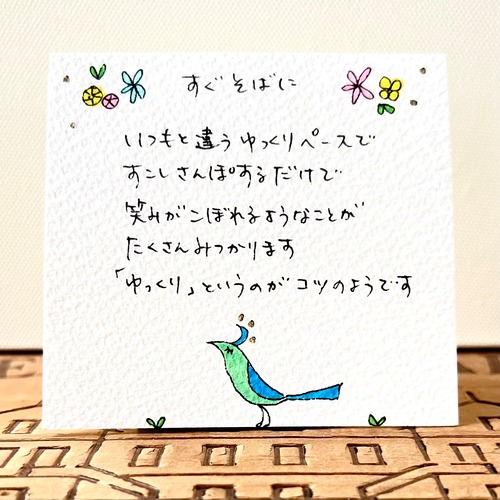 すぐそばに
いつもと違うゆっくりペースで
すこしさんぽするだけで
笑みがこぼれるようなことが
たくさんみつかります
「ゆっくり」というのがコツのようです